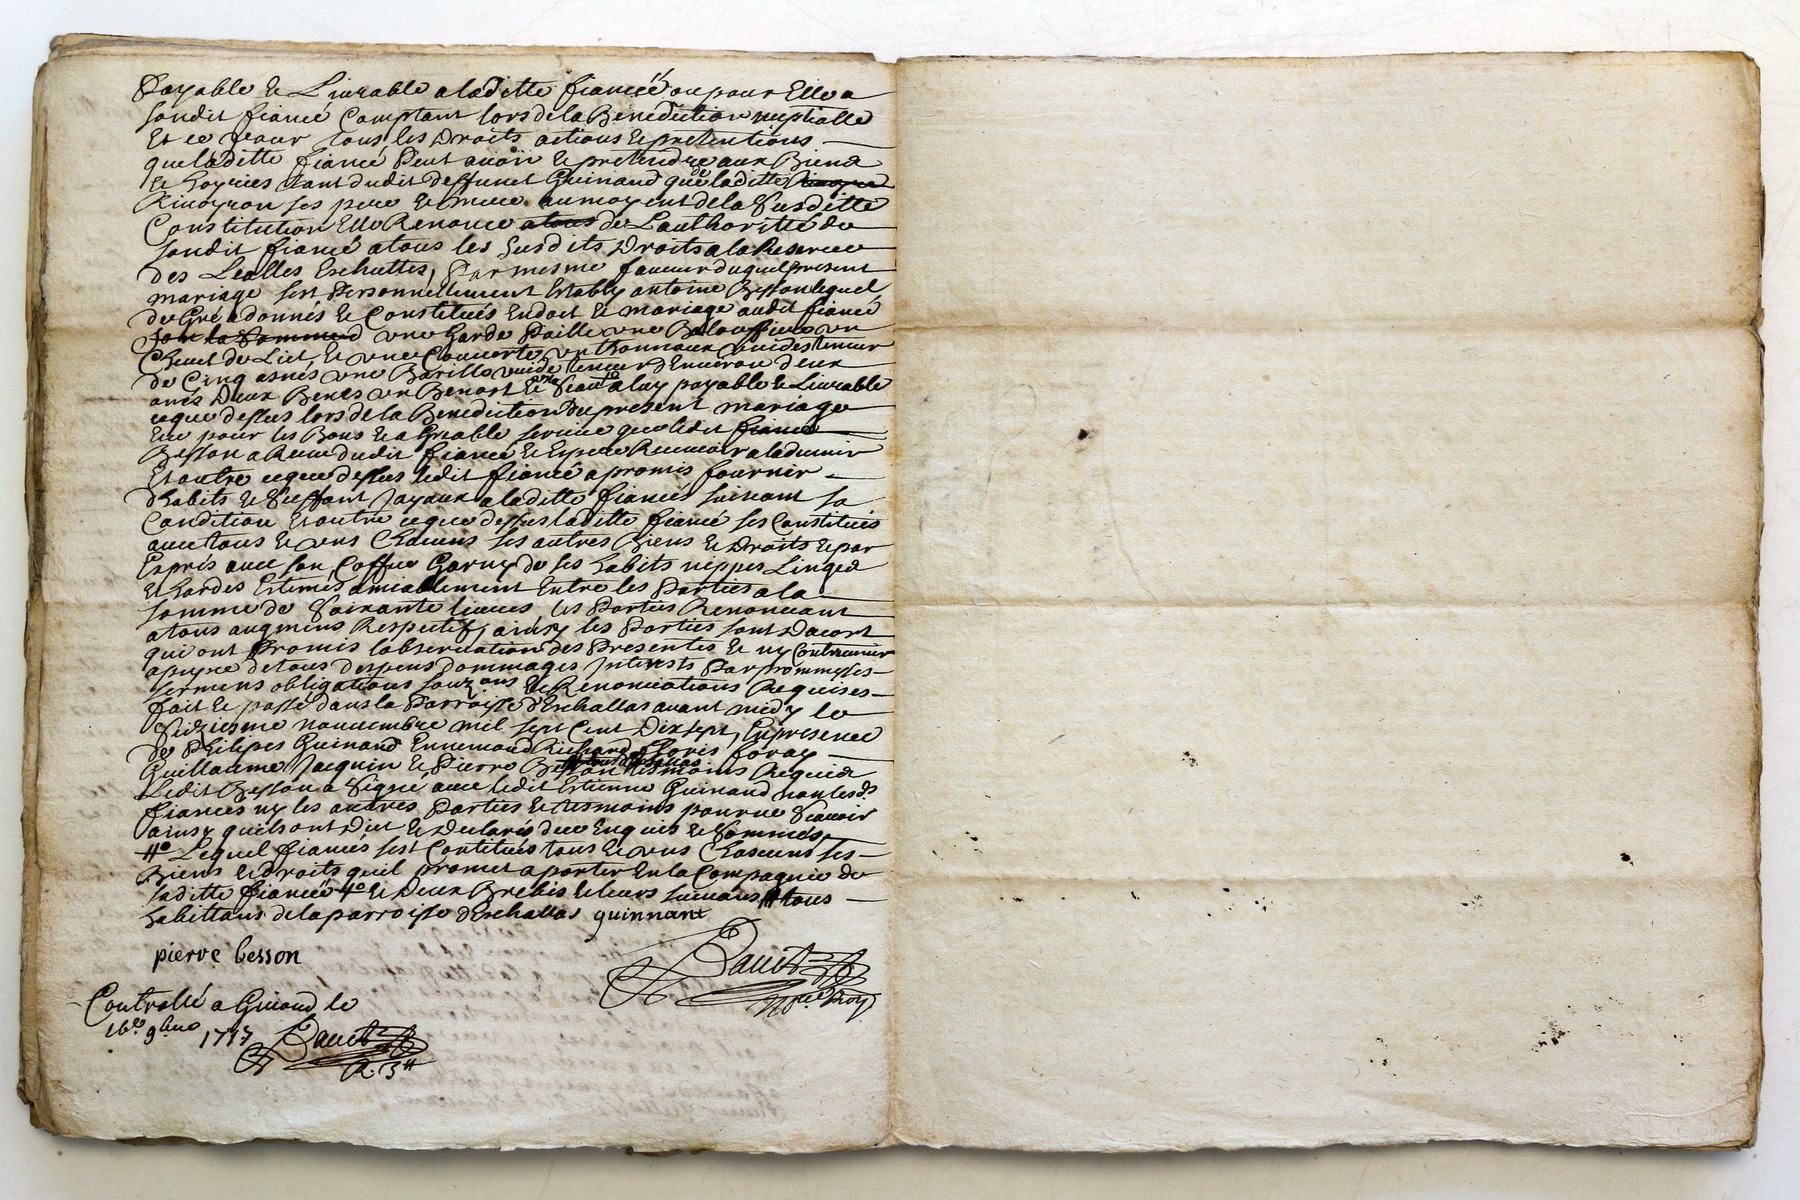 Payable & Livrable a laditte fianceé ou pour Elle a
sondit fiancé Comptant lors de la Benediction nuptialle
Et ce pour tous les Droits actions & pretentions
que laditte fiancé Peut avoir & pretendre aux Biens
& hoyries tant dudit deffunct Guinand que de laditte
Rivoyron ses pere & mere au moyent de la Susditte
Constitution Elle Renonce atous de Lauthoritté du
sondit fiancé atous les susdits Droits a la Reserve
des Lealles Escheuttes, Par mesme faveur duquel present
mariage sest Personnellement Estably antoine Besson lequel
de Gré a donnés & Constitués En dot & mariage audit fiancé
son la Somme d une Garde Paille une Baloussiere un
Chevet de Lict, Et une Couverte un thonneaux vuides teneur
de Cinq asnés une Barille vuide teneur d'Environ deux
anés Deux Benes un Benost & une a luy payable & Livrable
ceque dessus lors de la Benediction du present mariage
Ece pour les Bons & aGreable service que ledit fiancé
Besson a Receu dudit fiancé & Espere Recevoir a ladvenir
Et outre ceque dessus ledit fiancé a promis fournir
d'habits & Joyaux a laditte fiancés suivant sa
Condition Et outre ceque dessus laditte fiancé ses Constitués
avec tous & uns Chacuns ses autres Biens & Droits & par
Exprés avec son Coffre Garny de ses habits nippes Linges
& hardes Estimés amiablement Entre les Parties a la
somme de Soixante livres, les Parties Renonceant
atous augmens Respectifs, ainsy les Parties sont Dacort
qui ont Promis lobservation des Presentes & ny Contrevenir
apeyne de tous despens dommages Interests Par prommesses
sermens obligations & Renonciations Requises
fait & passé dans la Parroisse d'Eschallas avant midy le
Sizieme novembre mil sept Cent Dix sept, En presence
de Philipes Guinand Ennemond Richard floris foray
Guillaume Jacquin & Pierre Besson tesmoins Requis
Ledit Besson a Signé avec ledit Estienne Guinand non lesds
fiancés ny les autres Parties & tesmoins pour ne Scavoir
ainsy quils ont Dict & Declarés de ce Enquis & Sommés
Lequel fiancés sest Contitués tous & uns Chascuns ses
Biens & droits quil promet aporter En la Compagnie de
saditte fiancé & Deux Brebis & leurs suivans tous
habittans de la parroisse d'Eschallas quinnant
pierre besson
Dauit
Nore Roy
Controllé a Givord le
16e 9bre 1717
Dauit
R. 3